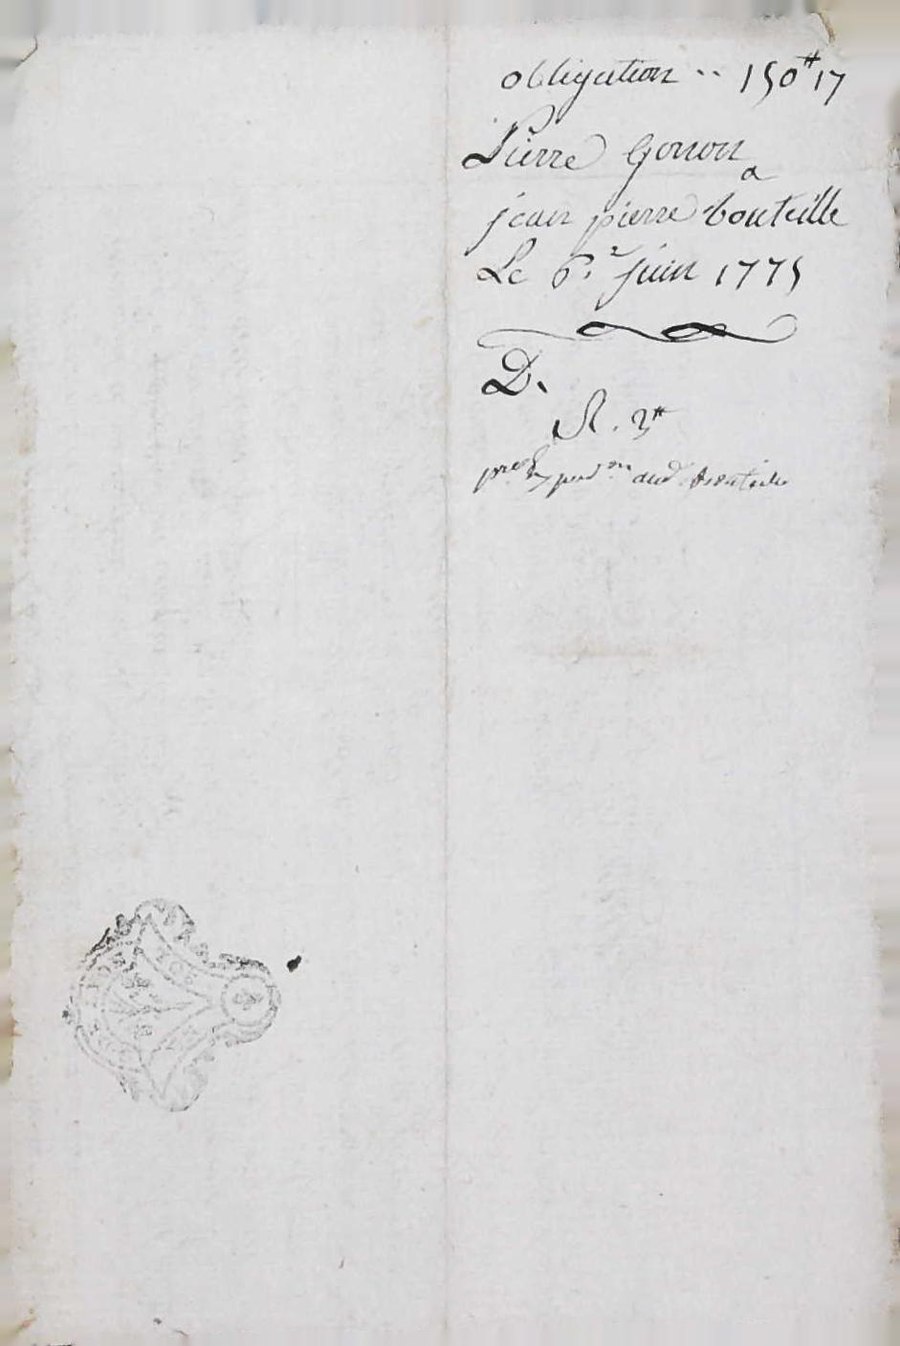 obligation .. 150# 17
Pierre Gonon
a
jean pierre bouteille
Le 6.e juin 1775
D.
R. 3#
aud. bouteille